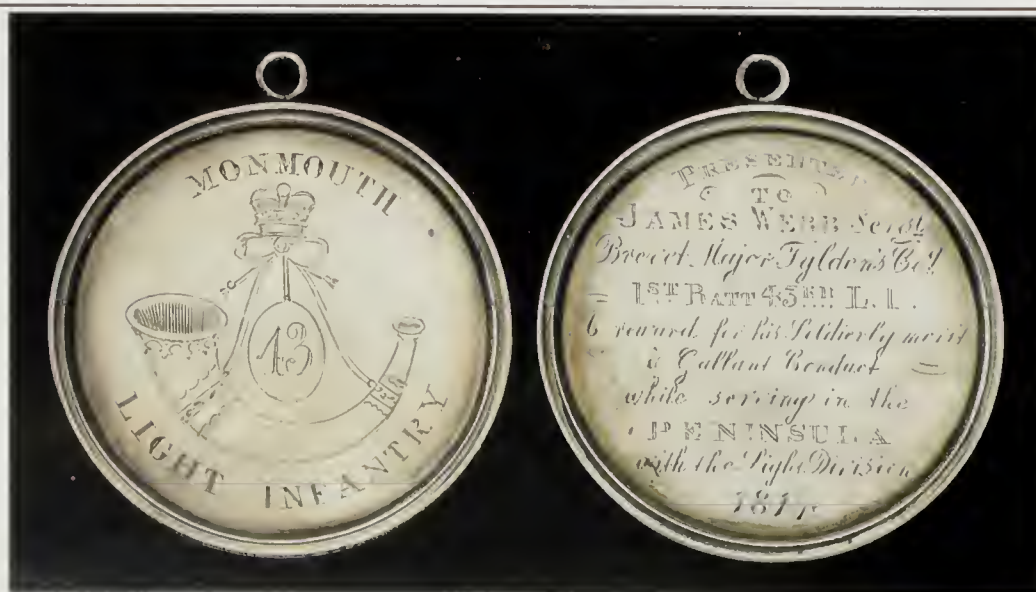 MONMOUTH
43
LIGHT INFANTRY
PRESENTED
TO
JAMES WEBB Serjt
Brevet Major Tylden's Coy.
= 1ST BATT 43RD L.I.
reward for his Soldierly merit
& Gallant Conduct =
while serving in the
PENINSULA
with the Light Division